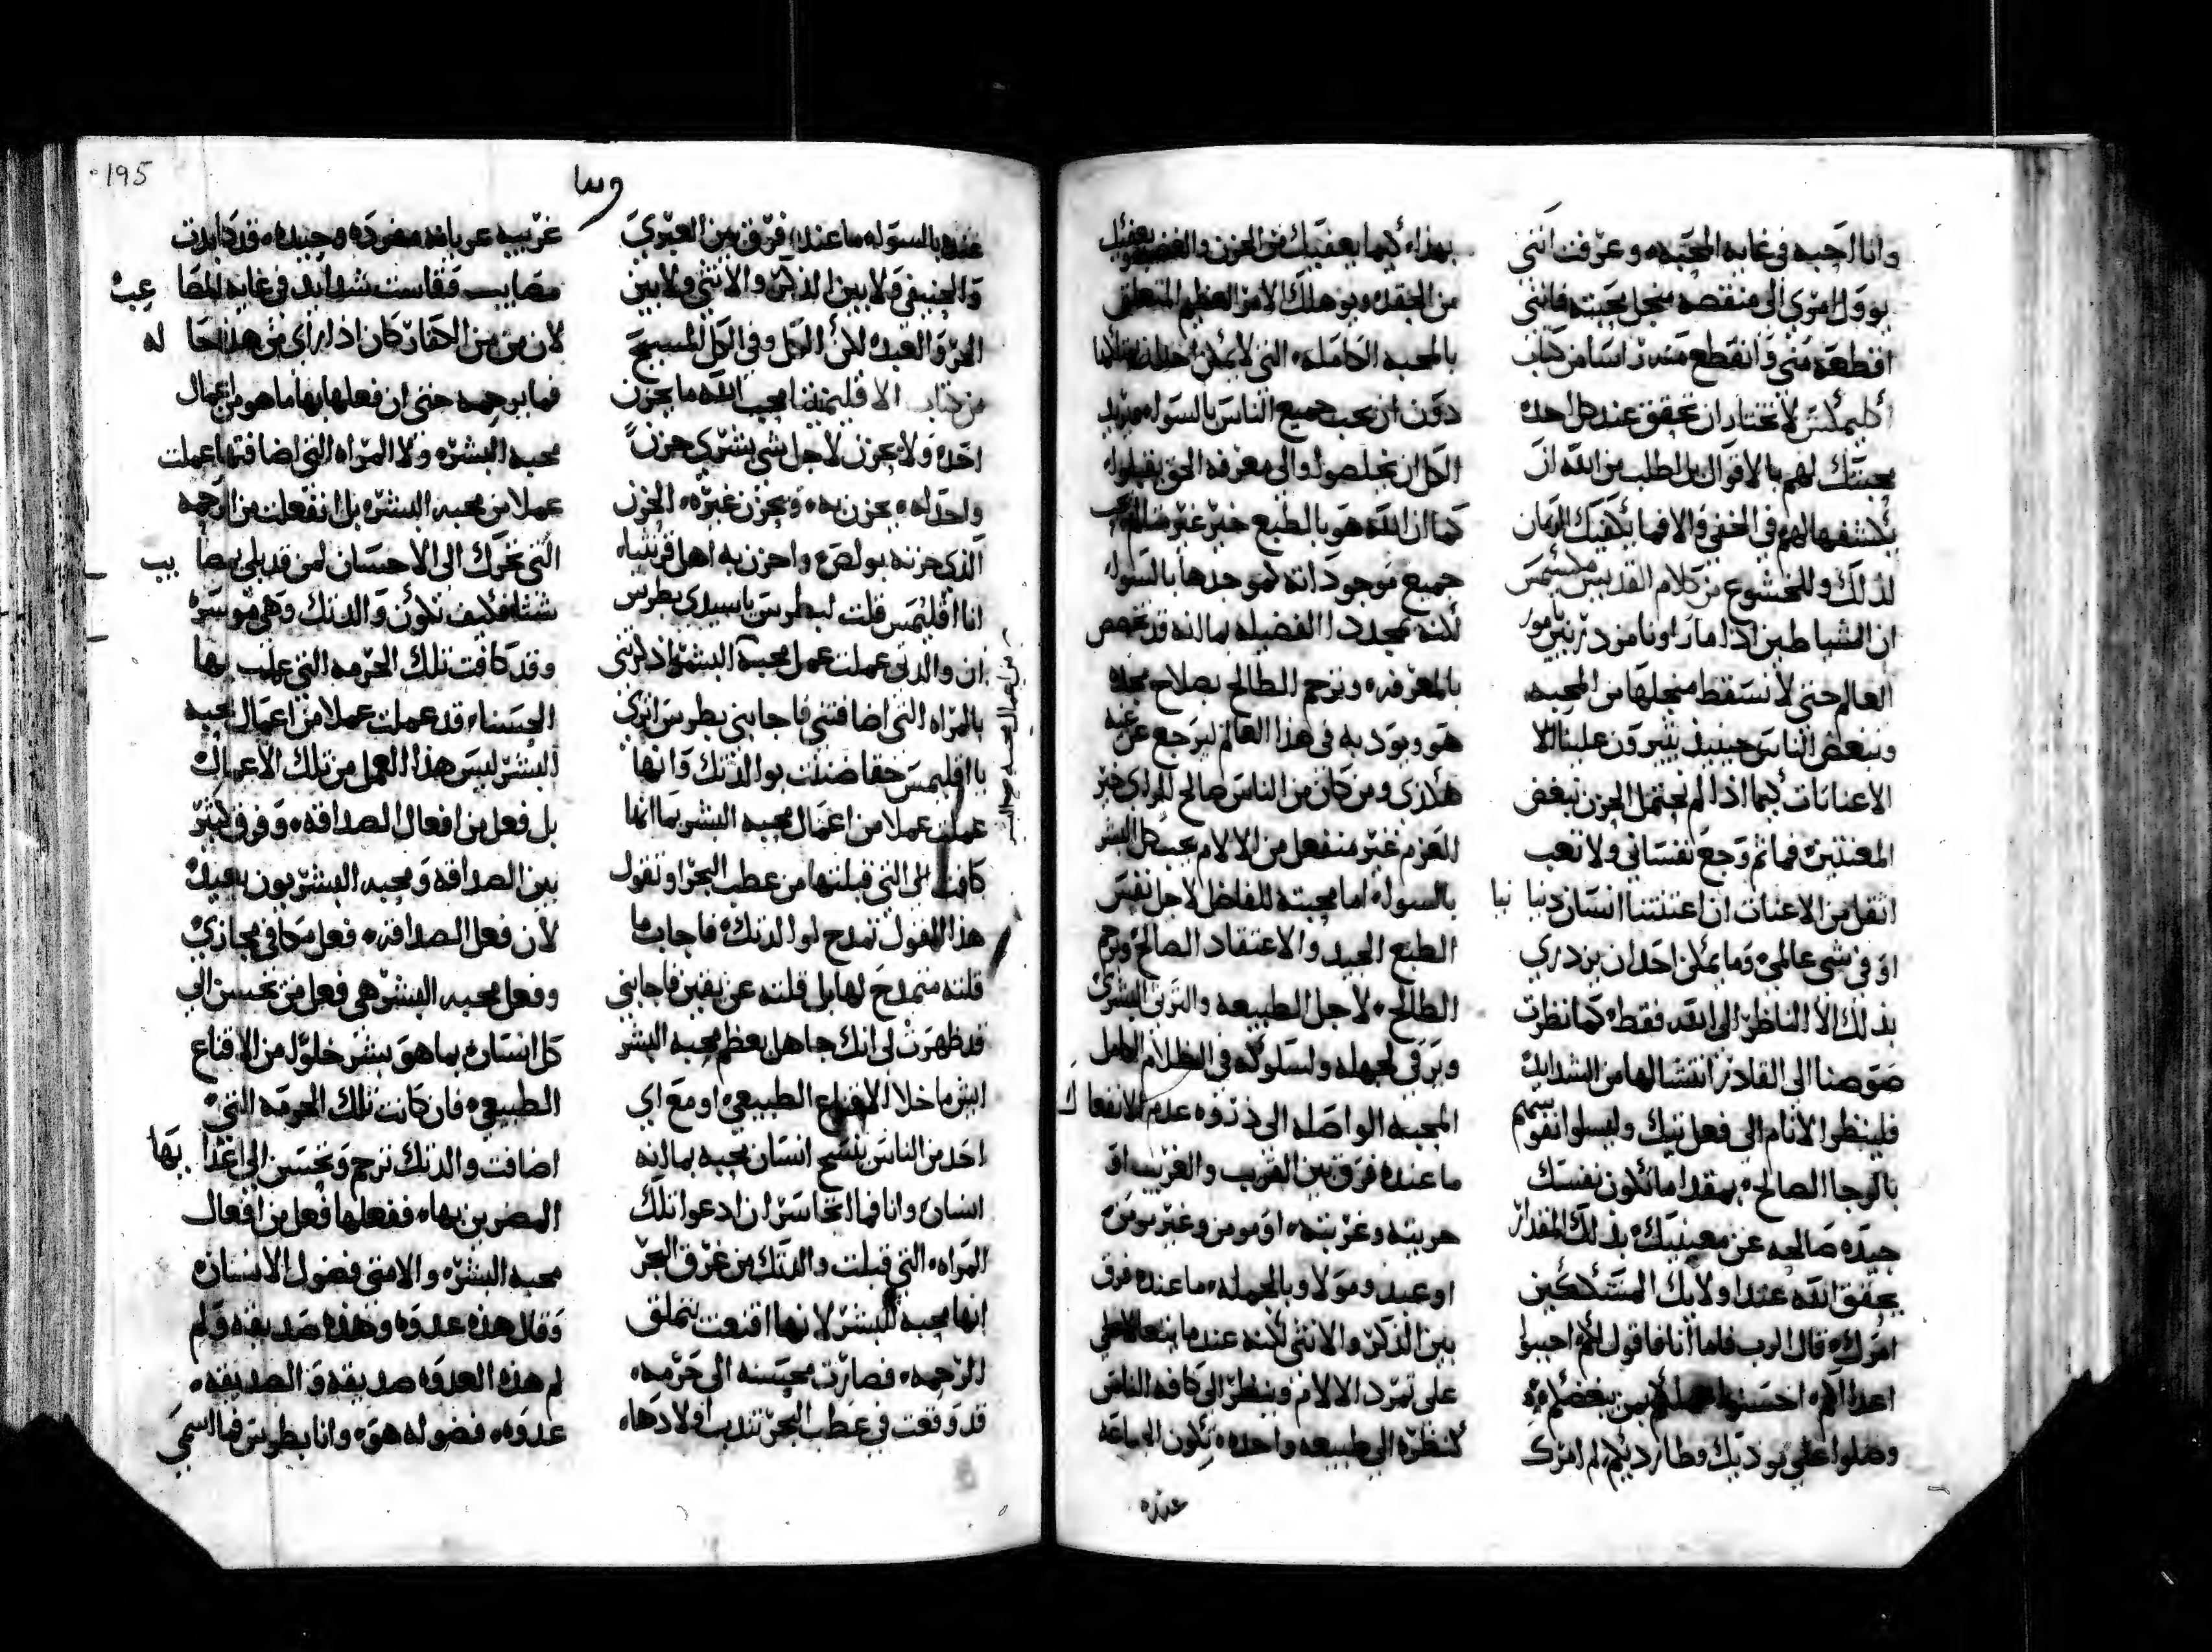 وانا احبه في غايه المحبه، وعرفت انني
يوول امري الى منقصه منجل محبته فانني
اقطعه مني وانقطع منه راسا من كتاب
اكليمكس لا تختار ان تحقق عند كل احد
محبتك لهم بالاقوال بل اطلب من الله ان
يكشفها لهم في الخفي والا فما يكفيك الزمان
لذلك وللخشوع من كلام القديس مكسيمس
ان الشياطين اذا ما راونا مزدريين بامور
العالم حتى لا نسقط منجلها من المحبه
ونبغض الناس حينيذ يثيرون علينا
الاعنانات كيما اذا لم نحتمل الحزن نبغض
المعنتين فما ثم وجع نفساني ولا تعب
اثقل من الاعنات ان اعنتنا انسان دنيا نيا
او في شي عالمي وما يمكن احد ان يزدري
بذلك الا الناظر الى الله فقط كما نظرت
صوصنا الى القادر انتشالها من الشدايد
فلينظر الانام الى فعل تيك وليسلوا نفوسهم
بالرجا الصالح بمقدار ما تكون نفسك
جيده صالحه عن معينيك بذلك المقدار
يحقق الله عند اولايك المتشككين
امرك قال الرب فاما انا فاقول لكم احبوا
اعداكم احسنوا الى من يبغضكم
وصلوا على موذيك وطارديكم لم امرك
بهذا، كيما يعفيك من الحزن والغضب
من الحقد ويوهلك الامر العظيم المتعلق
بالمحبه الكامله، التي لا يمكن
دون ان يحب جميع الناس بالسوله مريد
الكل ان يخلصوا والى معرفه الحق يقبلوا
كما ان الله هو بالطبع خير غير متالم
جميع موجوداته كموجدها بالسوله
لكنه يمجد الفضيله بما انه قد تخصص
بالمعرفه، ويرحم الطالح بصلاح مجده
هو ويودبه في هذا العالم ليرجع عن
هكذى ومن كان من الناس صالح الراي خير
العزم غير منفعل من الالام يحب كل البشر
بالسوله اما محبته للفاضل لاجل نفس
الطبع الجيد والاعتقاد الصالح ويرحم
الطالح، لاجل الطبيعه والترتي البشري
ويرقي لجهله ولسلوكه في الظلام الكامل
المحبه الواصله الى ذروه عدم الانفعا ك
ما عنده فرق بين القريب والغريب او
حريته وغريته، او مومن وغير مومن
او عبد ومولا وبالجمله ما عنده فرق
بين الذكر والانثى لكنه عند ما يتعالا على
على تمرد الالام وينظر الى كافه الناس
كنظره الى طبيعه واحده تكون الجماعه
عنده
وسا
عنده بالسوله ما عنده فرق بين العبري
والحنيفي ولا بين الذكر والانثى ولا بين
الحر والعبد لكن الكل وفي الكل المسيح
من كتاب الاقليمنضا محب الله ما يحزن
احد ولا يحزن لاجل شي بشري حزن
واحد له يحزن به، ويحزن غيره، الحزن
الذي حزنه بولص واحزن به اهل قرنثيا،
انا اقليمس قلت لبطرس يا سيدي بطرس
ان والدتي عملت عمل محبة البشر اذكرتني
بالمراه التي اضافتني فاجابني بطرس اترى
يا اقليمس حقا ضنت بوالدتك وانها
عملت عملا من اعمال محبه البشر بما انها
كافت التي قبلتها من عطب البحر او تقول
هذا القول تمدح لوالدتك فاجاب ما
قلته متمدح لها بل قلته عن يقين فاجابني
قد ظهرت لي انك جاهل بعظم محبه البشر
ايش ما خلا الاقناع الطبيعي او مع اي
احد من الناس ينسج انسان محبه بما انه
انسان وانا فما اتجاسر ان ادعو تلك
المراه التي قبلت والدتك من غرق البحر
انها محبه للبشر لانها اقنعت بتملق
للرحمه، فصارت محسنه الى حرمه،
قد وقعت في عطب البحر تندب اولادها،
195
غريبه عريانه مفرده وحيده، قد كابدت
مصايب وقاست شدايد في غايه المصا عبه
لان من من الكفار كان اذا راى من هذا حا له
فما يرحمه حتى ان فعلها بها ما هو من اعمال
محبه البشر، ولا المراه التي اضافتها عملت
عملا من محبه البشر، بل انفعلت من الرحمه
التي تحرك الى الاحسان لمن قد بلي بمصا يب
شتا، فكيف تكون والدتك وهي موسره
وقد كافت تلك الحرمه التي عملت بها
الحسنا، قد عملت عملا من اعمال محبه
البشر ليس هذا العمل من تلك الاعمال
بل فعل من افعال الصداقه، وفرق كبير
بين الصداقه ومحبه البشر بون بعيد
لان فعل الصداقه، فعل مكافي مجازي
وفعل محبه البشر هي فعل من يحسن الى
كل انسان بما هو بشر خلو من الاقناع
الطبيعي، فان كانت تلك الحرمه التي
اضافت والدتك ترحم وتحسن الى اعدا يها
المضرين بها، ففعلها فعل من افعال
محبه البشر، والا متى فضول الانسان
وقال هذه عدوه وهذه صديقه ولم
لم هذه العدوه صديقه والصديقه،
عدوه، فضوله هو، وانا بطرس فما اسمي